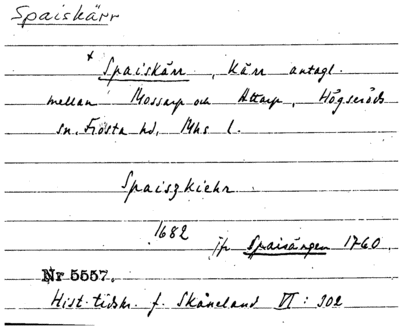 Spaiskärr
x
Spaiskärr, kärr antagl.
mellan Mossarp och Attarp, Högseröds
sn, Frosta hd, Mhs l.
Spaiszkiehr
1682
jfr Spaisängen 1760.
Nr 5557.
Hist. tidskr. f. Skåneland VI: 302